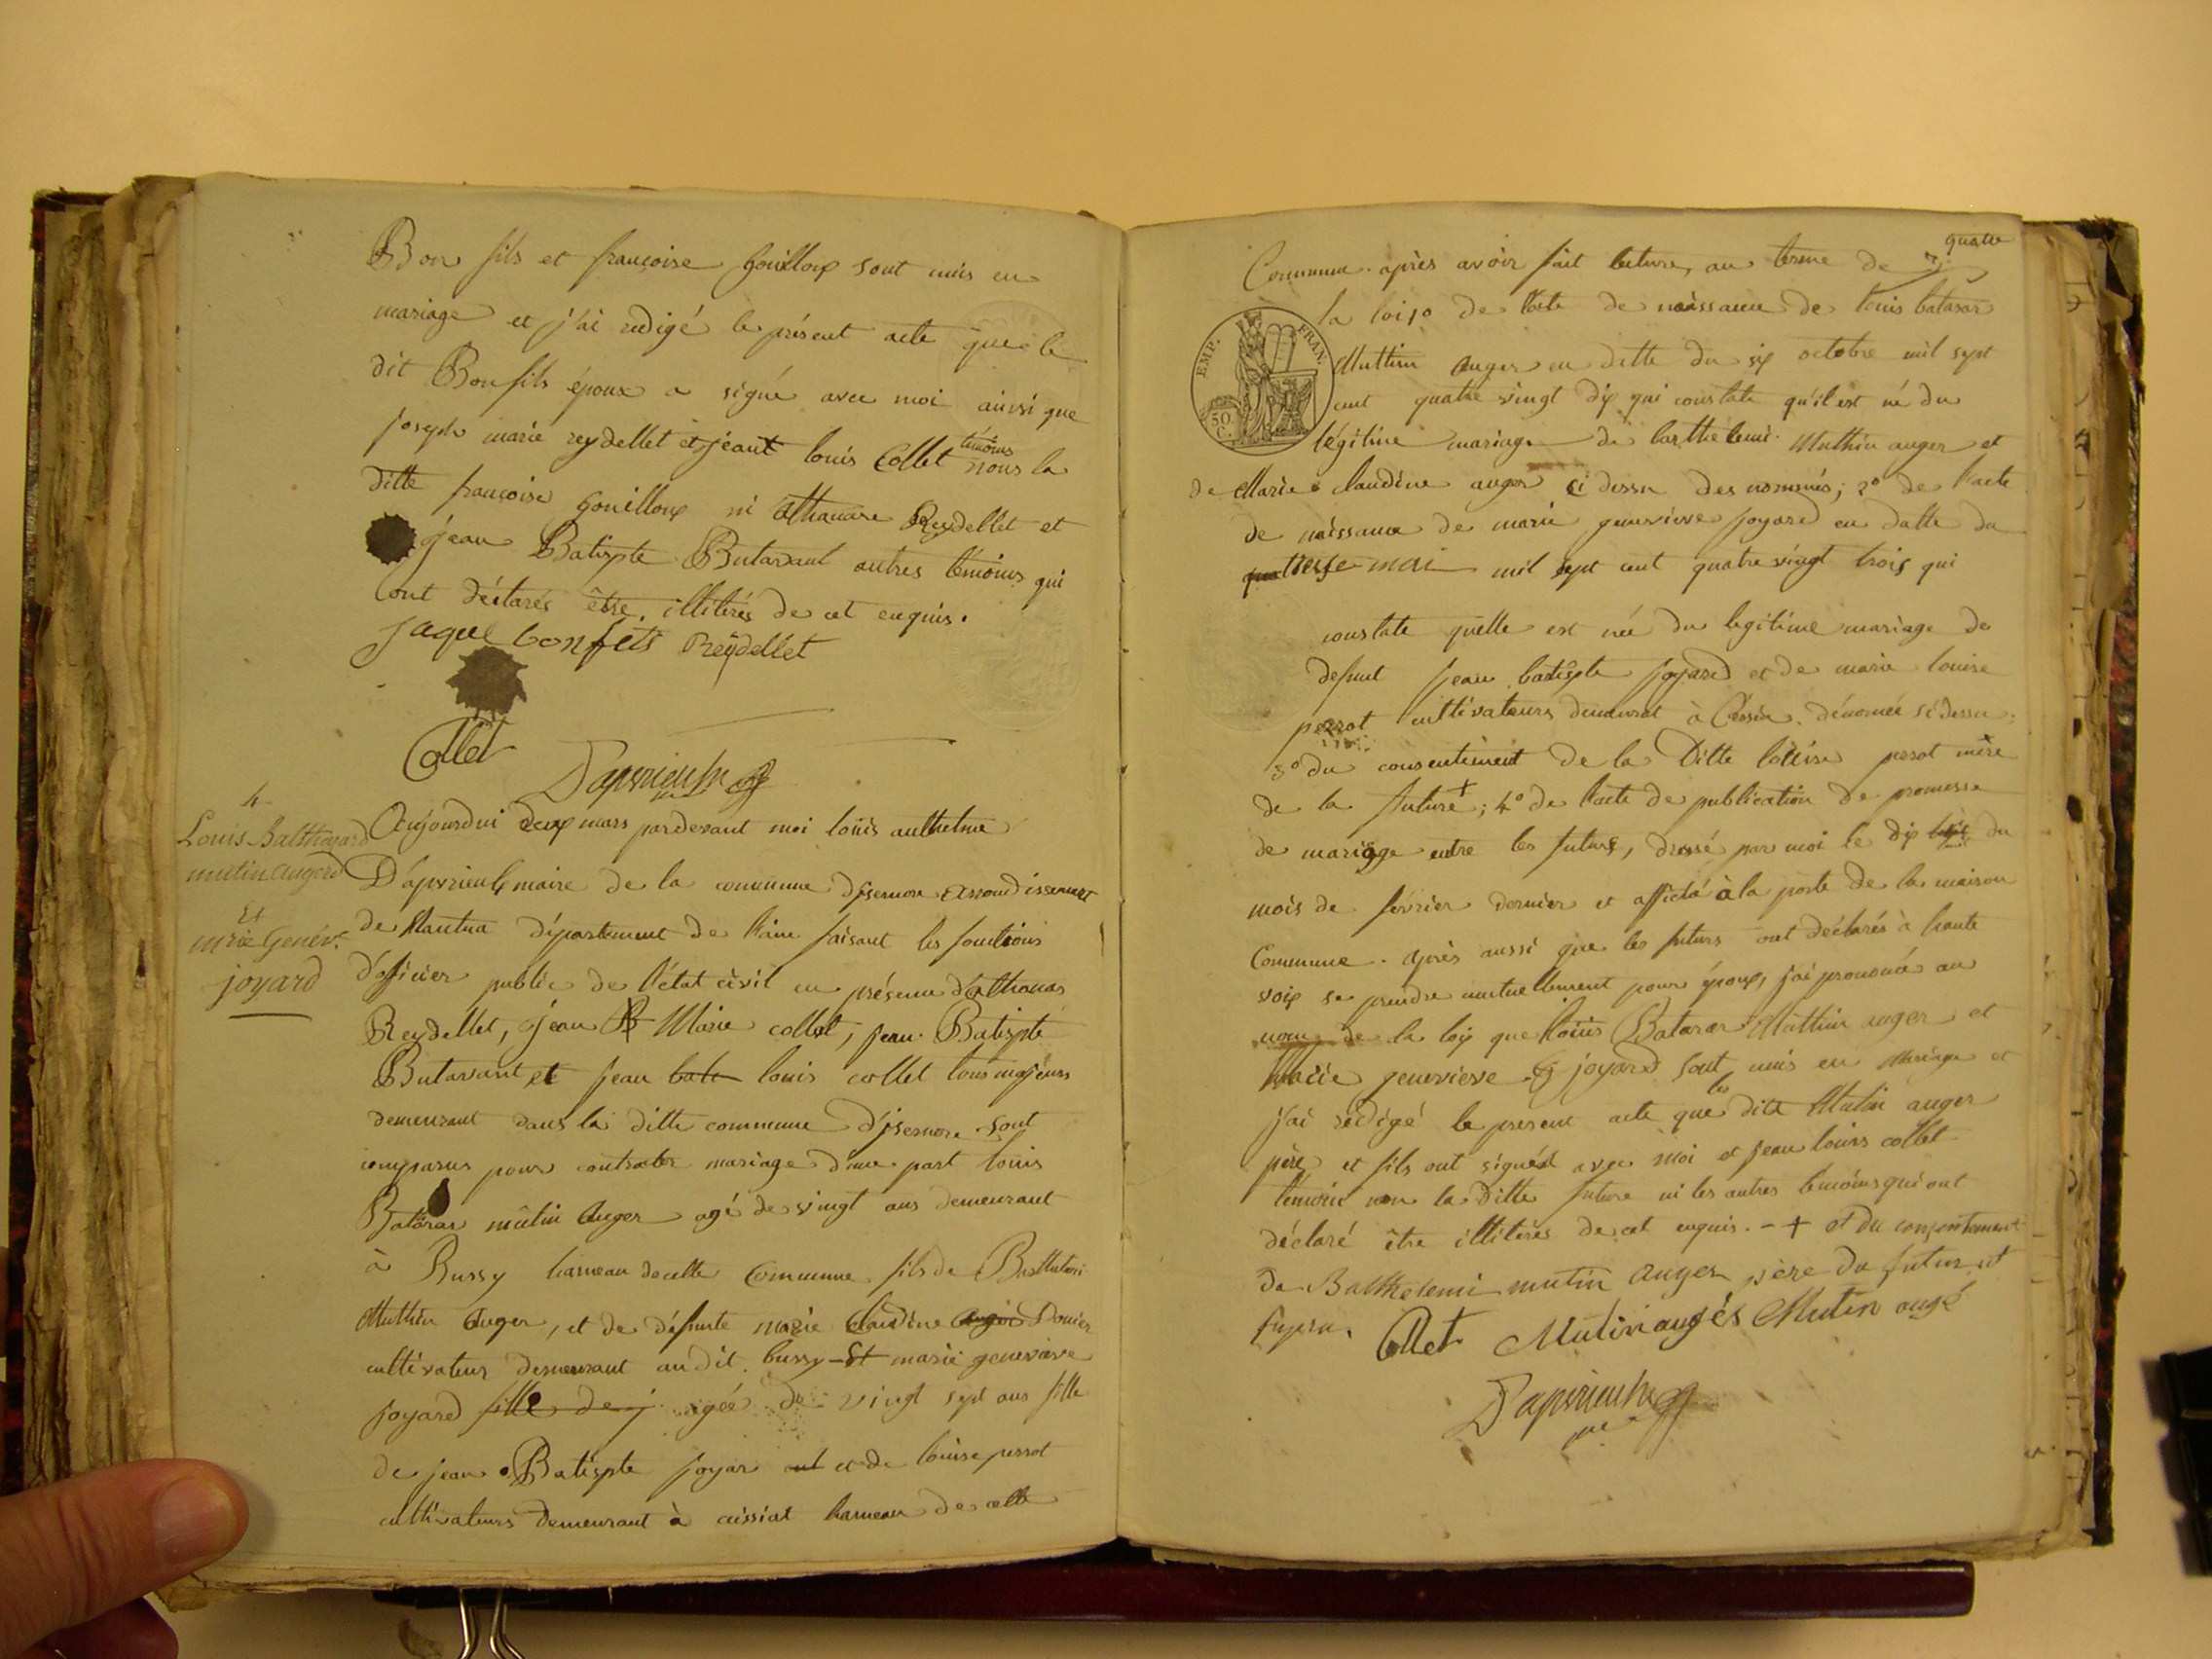 Bon fils et françoise Gouilloux sont unis en
mariage et j'ai redigé le présent acte que le
dit Bonfils époux a signé avec moi ainsi que
joseph marie reydellet et jean louis Collet témoins non la
ditte françoise gouilloux ni Athanase Reydellet et
jean Batispte Butavant autres témoins qui
ont déclarés être illitérés de cet enquis.
jaque bonfils Reydellet
Collet
Dapvrieulx
4
Louis Balthazard
mutin augerd
Et
mrie Genév.
joyard
Aujourdui deux mars pardevant moi loüis anthelme
Dapvrieulx maire de la commune d'jsernore arrondissement
de Nantua département de l'ain faisant les fonctions
d'officier public de l'état civil en présence d'athanas
Reydellet, jean B Marie collet, jean Batispte
Butavant et jean bate louis collet tous majeurs
demeurant dans la ditte commune d'jsernore sont
comparus pour contracter mariage d'une part louis
Batasar mutin Auger agé de vingt ans demeurant
à Bussy hameau de cette Commune fils de Barthelemi
Muthin Auger, et de défunte marie Claudine auger Douier
cultivateur demeurant audit bussy - Et marie genevieve
joyard fille de j agée de vingt sept ans fille
de jean Batispte joyar et de louise perrot
cultivateurs demeurant à ceissiat hameau de cette
quatre
Commune. après avoir fait lecture, au terme de
la loi 1º de l'acte de naissance de louis batasar
EMP. FRAN.
50 C.
Muttin Auger en datte du six octobre mil sept
cent quatre vingt dix qui constate qu'il est né du
légitime mariage de barthelemi Muthin auger et
de Marie claudine auger ci dessu des nommés; 2º de l'acte
de naissance de marie genevieve joyard en datte du
qua treize mai mil sept cent quatre vingt trois qui
constate quelle est née du legitime mariage de
defunt jean batispte joyard et de marie louise
perrot cultivateurs demeurant à Ceissia dénomée si dessu;
3º du consentement de la Ditte loüise perot mère
de la future +; 4º de l'acte de publication de promesse
de mariage entre les futurs, dressé par moi le dix du
mois de fevrier dernier et affiché à la porte de la maison
Commune. Après aussi que les futurs ont déclarés à haute
voix se prendre mutuellement pour époux, j'ai prononcé au
nom de la loy que loüis Batasar Muttin auger et
Marie genevieve joyard sont unis en mariage et
j'ai rédigé le present acte que les dits Mutin auger
père et fils ont signés avec moi et jean louis collet
témoin non la ditte future ni les autres témoins qui ont
déclaré être illitérés de cet enquis. - + et du consentement
de Balthelemi mutin Auger père du futur ut
supra.
Collet Mutin augés Mutin augé
Dapvrieulx